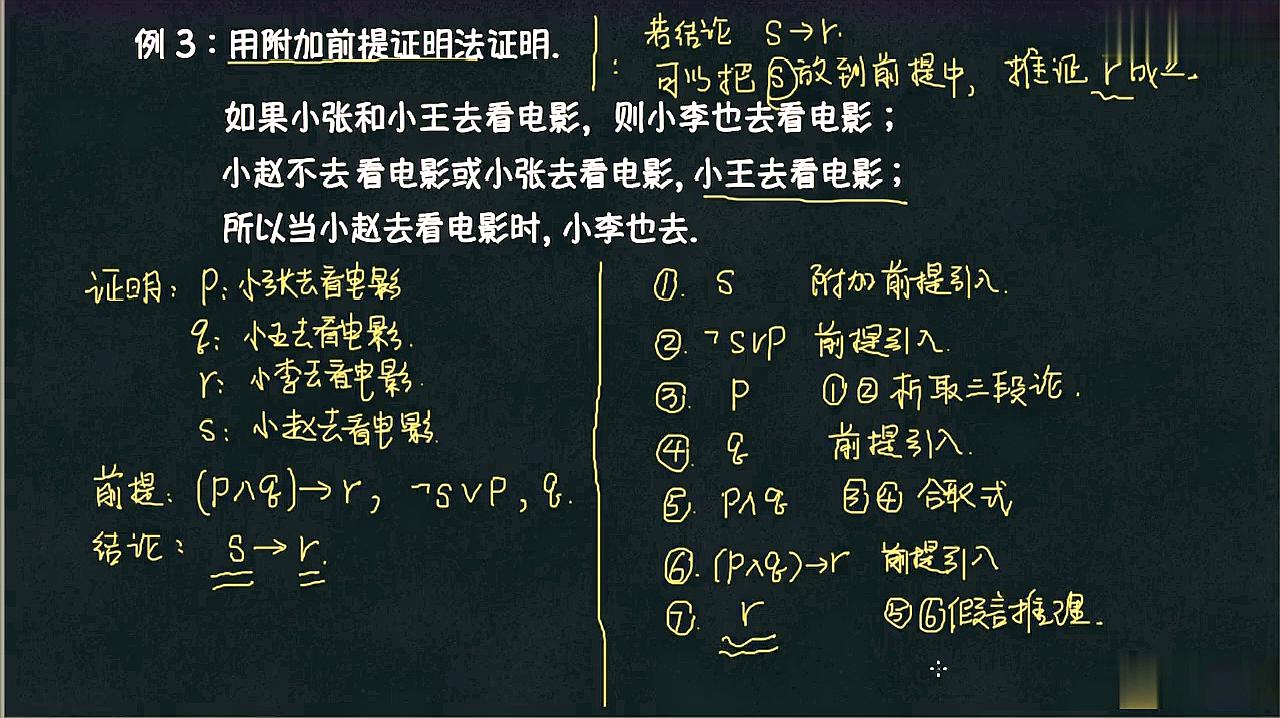 例 3：用附加前提证明法证明.
若结论 s→r.
可以把 s 放到前提中, 推证 r 成立.
如果小张和小王去看电影，则小李也去看电影；
小赵不去看电影或小张去看电影, 小王去看电影；
所以当小赵去看电影时, 小李也去.
证明: p: 小张去看电影
q: 小王去看电影.
r: 小李去看电影.
s: 小赵去看电影.
前提: (p∧q)→r, ¬s∨p, q.
结论: s→r.
①. s 附加前提引入.
②. ¬s∨p 前提引入.
③. p ①②析取三段论.
④. q 前提引入.
⑤. p∧q ③④合取式
⑥. (p∧q)→r 前提引入
⑦. r ⑤⑥假言推理.